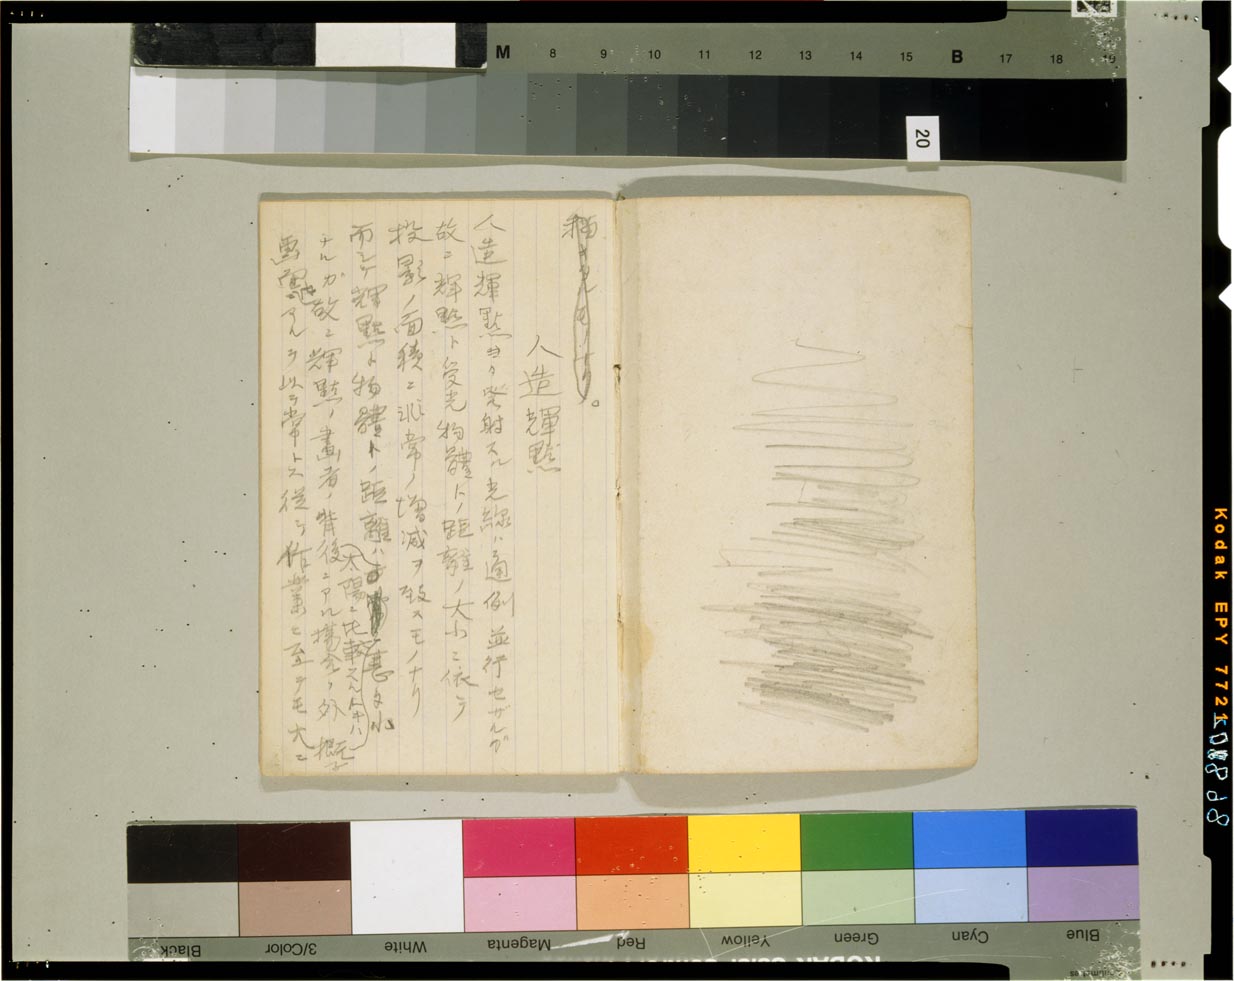 M 8 9 10 11 12 13 14 15 B 17 18 19
20
稱スルモノナリ。
人造輝點
人造輝點ヨリ発射スル光線ハ通例並行セザルガ
故ニ輝點ト受光物體トノ距離ノ大小ニ依ラ
投影ノ面積ニ非常ノ増減ヲ致スモノナリ
而シテ輝點ト物體トノ距離ハ甚タ小
太陽ニ比較スルトキハ
ナルガ故ニ輝點ノ畫者ノ背後ニアル場合ノ外概子
ルヲ以テ常トス従テ作業ニ至テモ大ニ
Black 3/Color White Magenta Red Yellow Green Cyan Blue
Kodak EPY 7721